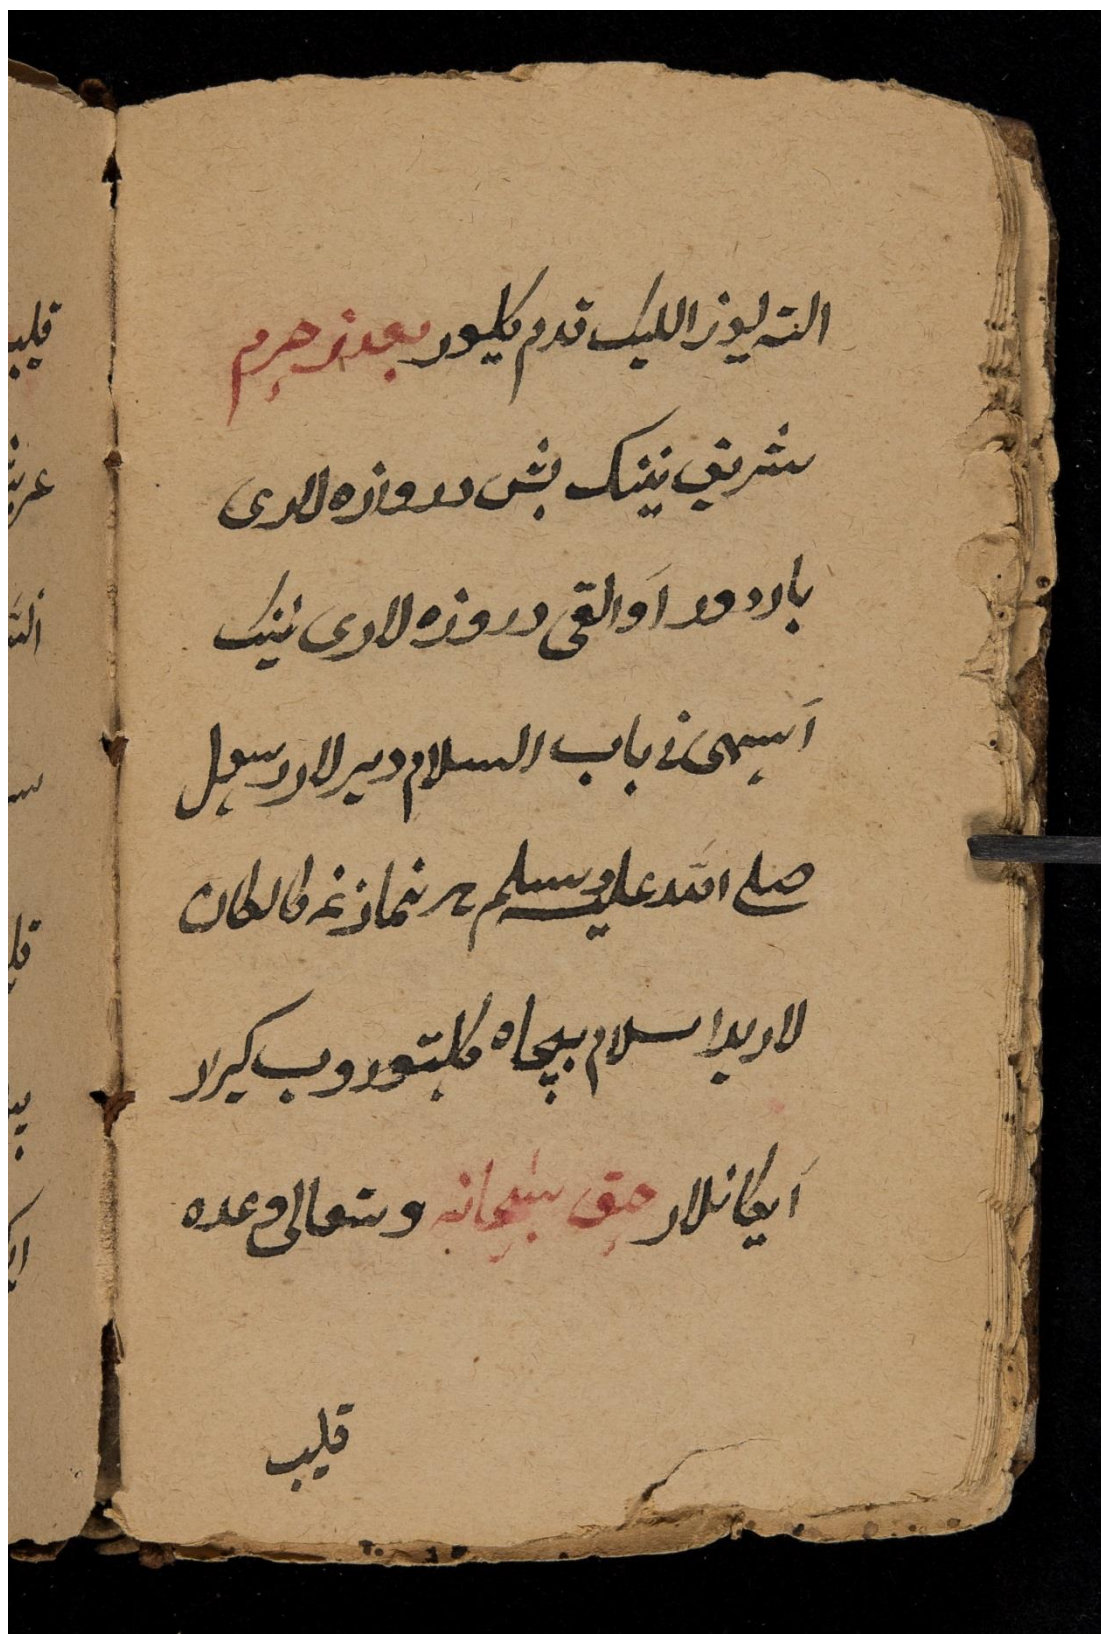 التە یوز اللیک قدم کیلور بعدن حرم
شریف نینک بش دروازه لاری
باردور اَوالقی دروازه لاری نینک
اَسمی نی باب السلام دیرلار رسول
صلی الله علیه وسلم هر نمازغه کالکان
لاریدا سلام بیجاه کلتوروب کیرلا
اَیکانلار حق سبحانه وتعالی وعده
قلیب
قلیب